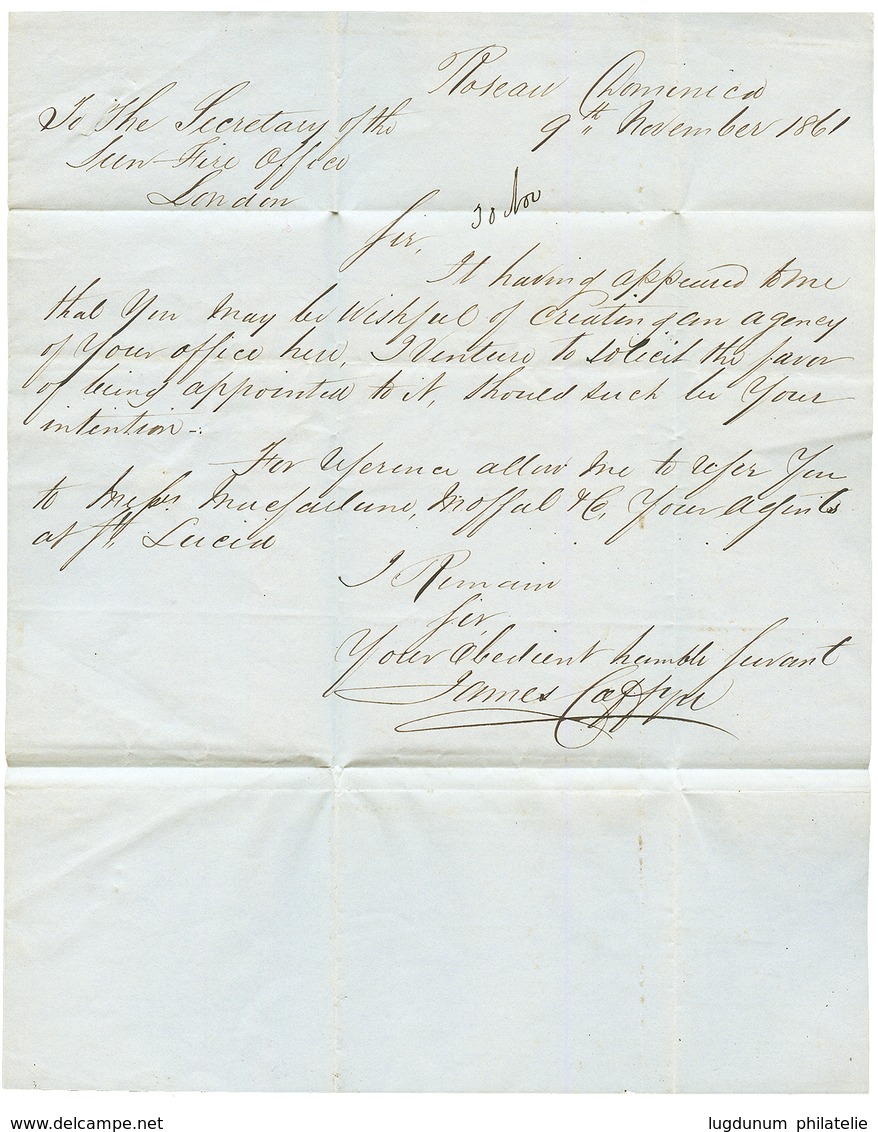 Roseau Dominica
9th November 1861
To The Secretary of the
Sun Fire Office
London
30 Nov
Sir,
It having appeared to me
that You may be Wishful of Creating an agency
of Your office here, I Venture to solicit the favor
of being appointed to it, Should such be Your
intention -:
For reference allow Me to refer You
to Messrs. Macfarlane, Moffat & Co, Your Agents
at St. Lucia
I Remain
Sir,
Your Obedient humble Servant
James
www.delcampe.net
lugdunum philatelie